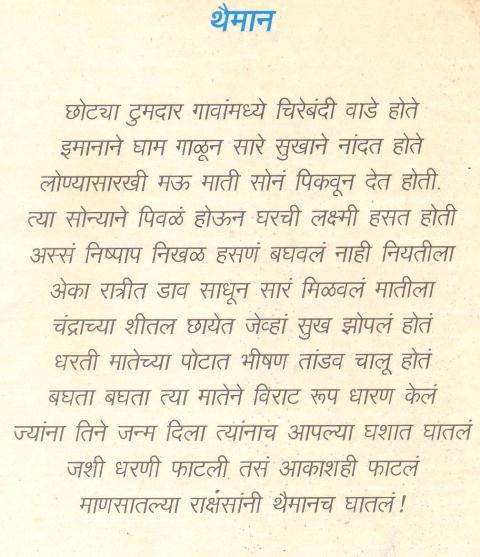 थैमान
छोट्या टुमदार गावांमध्ये चिरेबंदी वाडे होते
इमानाने घाम गाळून सारे सुखाने नांदत होते
लोण्यासारखी मऊ माती सोनं पिकवून देत होती.
त्या सोन्याने पिवळं होऊन घरची लक्ष्मी हसत होती
अस्सं निष्पाप निखळ हसणं बघवलं नाही नियतीला
अेका रात्रीत डाव साधून सारं मिळवलं मातीला
चंद्राच्या शीतल छायेत जेव्हां सुख झोपलं होतं
धरती मातेच्या पोटात भीषण तांडव चालू होतं
बघता बघता त्या मातेने विराट रूप धारण केलं
ज्यांना तिने जन्म दिला त्यांनाच आपल्या घशात घातलं
जशी धरणी फाटली तसं आकाशही फाटलं
माणसातल्या राक्षंसांनी थैमानच घातलं!